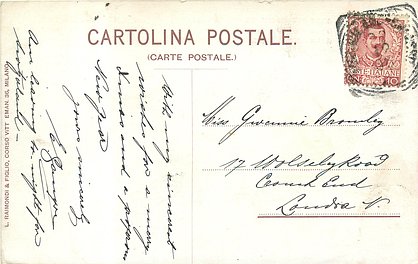 CARTOLINA POSTALE.
(CARTE POSTALE.)
L. RAIMONDI & FIGLIO, CORSO VITT. EMAN. 36, MILANO
With my sincerest
wishes for a merry
Xmas and a prosperous
New Year
Yours sincerely
am leaving to night for
POSTE ITALIANE
10
Miss Gwennie Bromley
17 Wolseley Road
Crouch End
Londra N.